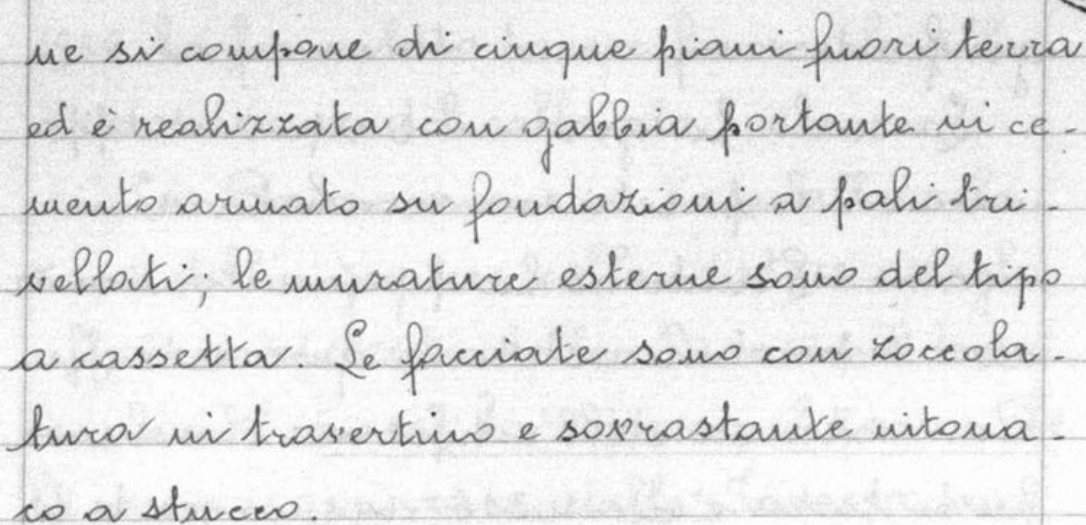 ne si compone di cinque piani fuori terra
ed è realizzata con gabbia portante in ce-
mento armato su fondazioni a pali tri-
vellati; le murature esterne sono del tipo
a cassetta. Le facciate sono con zoccola-
tura in travertino e sovrastante intona-
co a stucco.